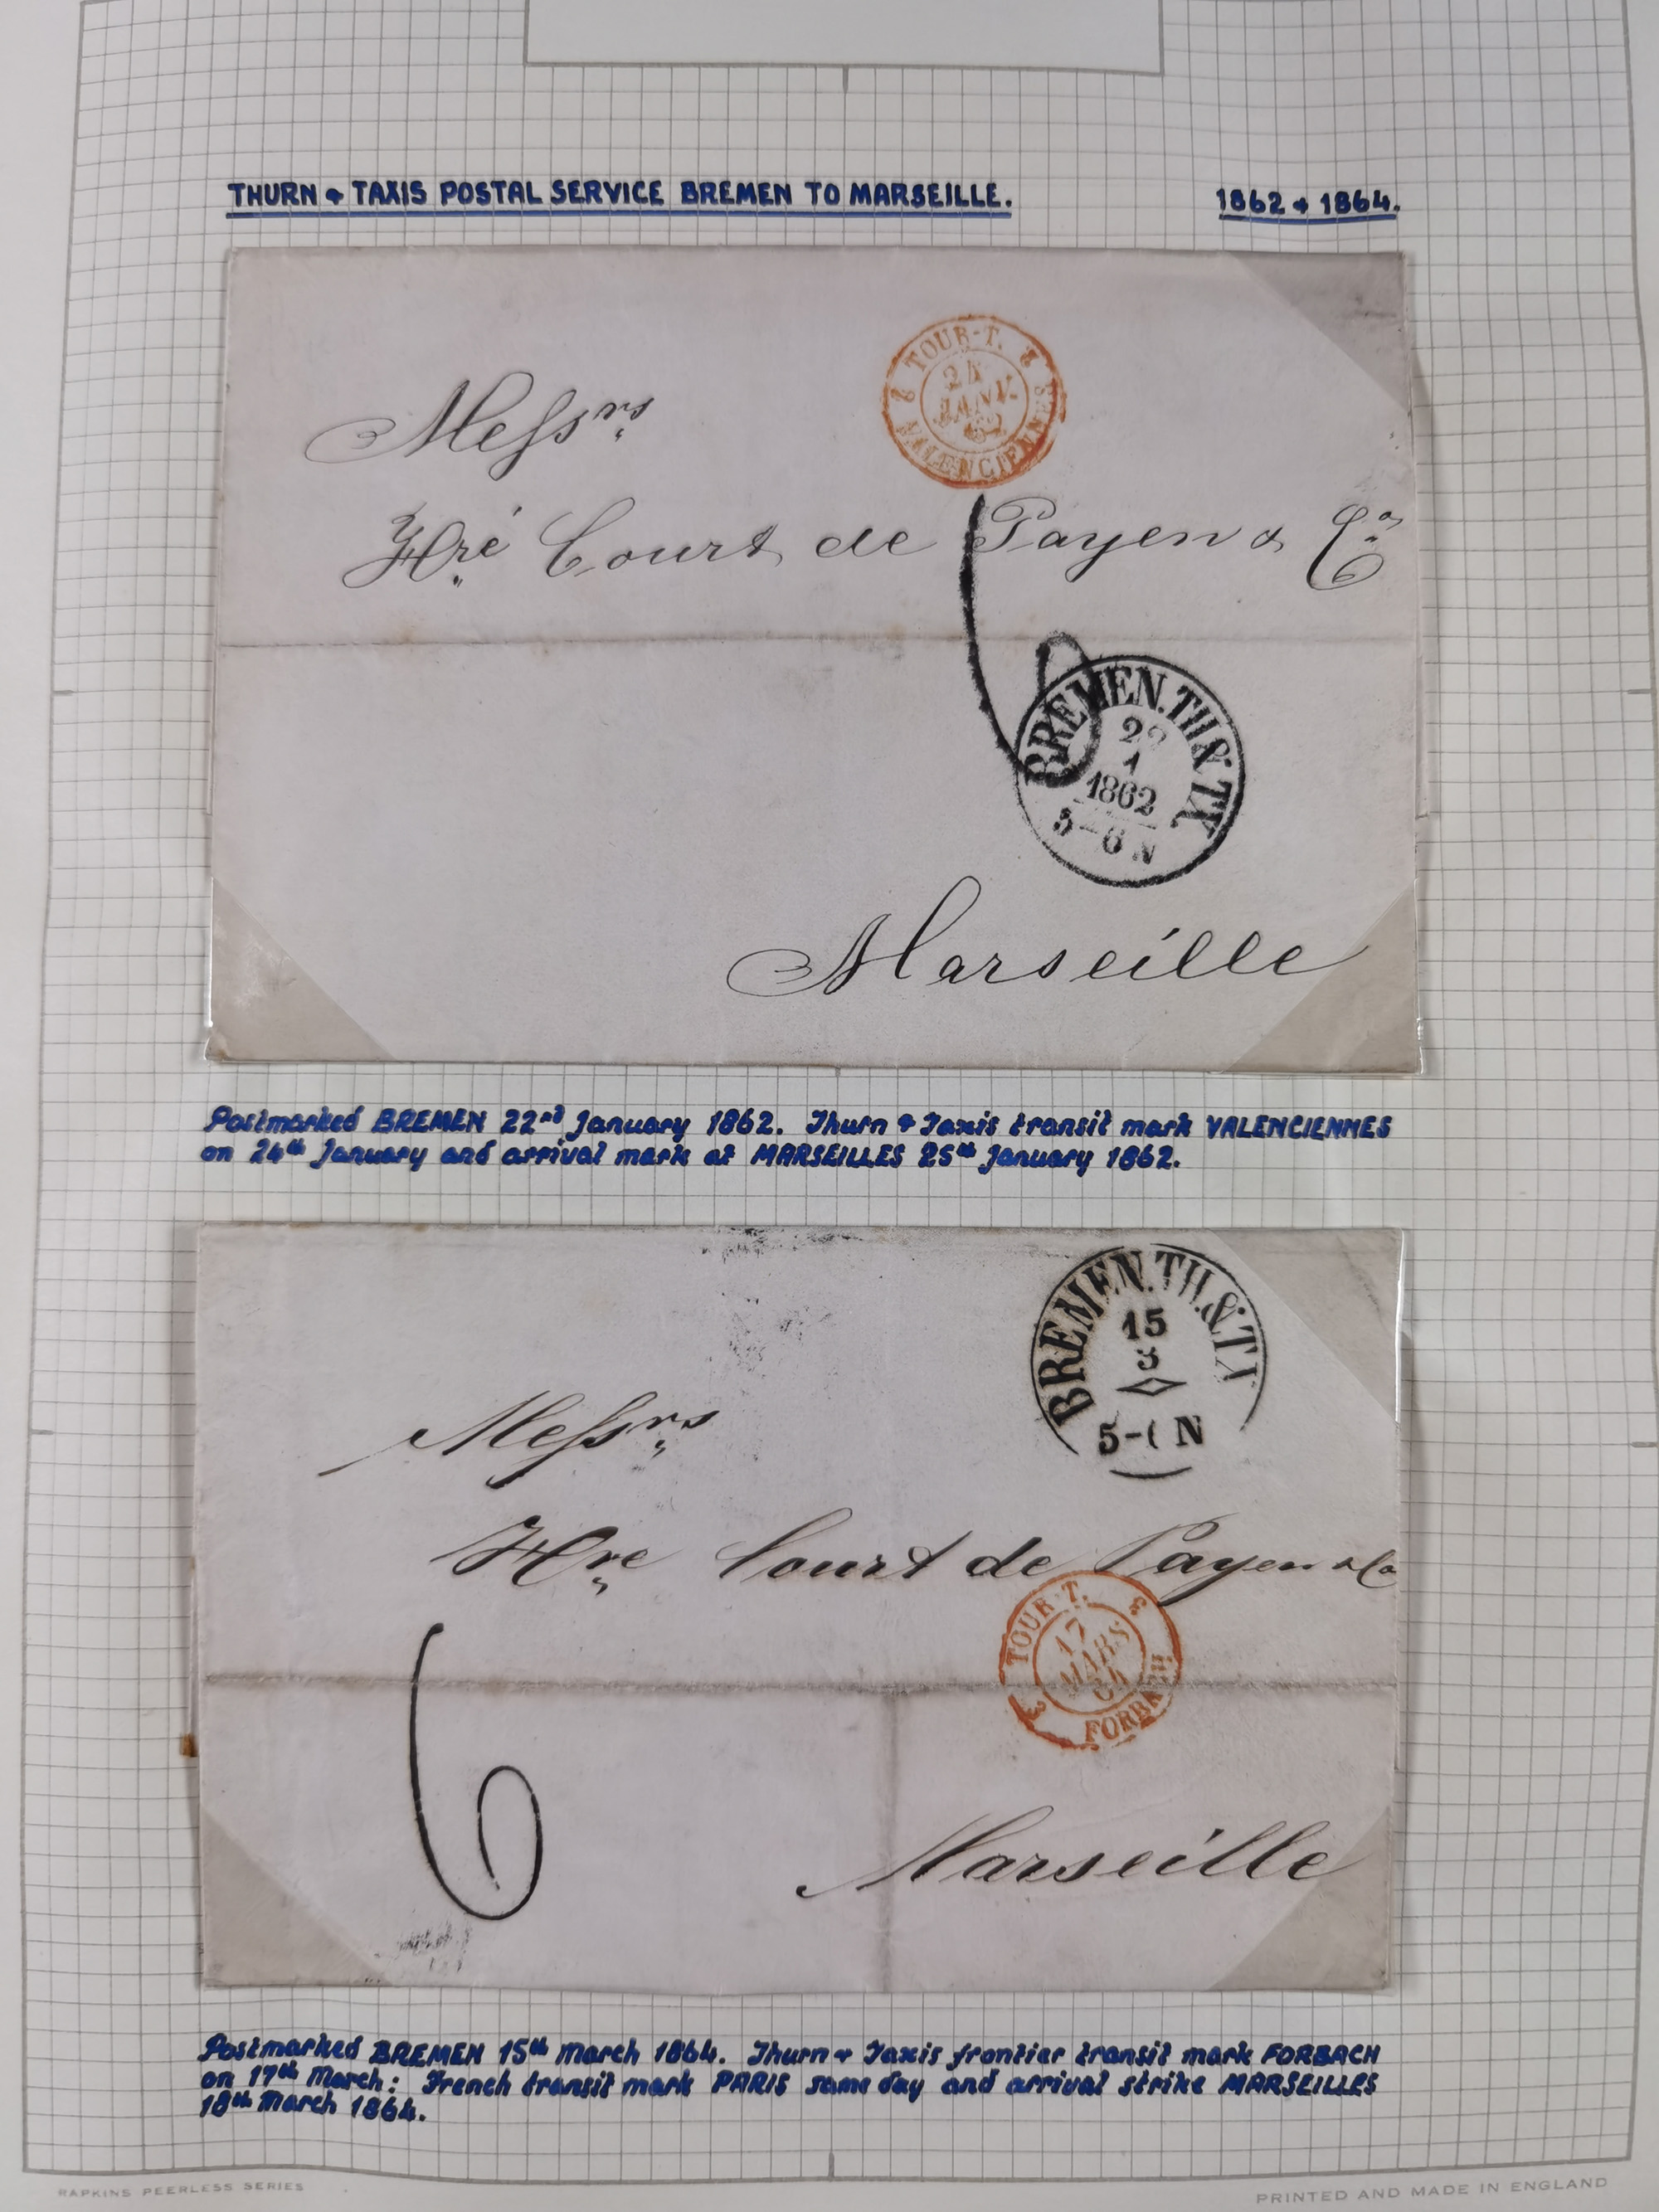 THURN & TAXIS POSTAL SERVICE BREMEN TO MARSEILLE. 1862 & 1864.
TOUR-T.
24
JANV.
62
VALENCIENNES
Messrs
Hre Court de Payen & Co
6
BREMEN.TH.&TX
22
1
1862
5-6 N
Marseille
Postmarked BREMEN 22nd January 1862. Thurn & Taxis transit mark VALENCIENNES
on 24th January and arrival mark at MARSEILLES 25th January 1862.
BREMEN.TH.&TX
15
3
5-6 N
Messrs
Hre Court de Payen & Co
TOUR-T.
17
MARS
64
FORBACH
6
Marseille
Postmarked BREMEN 15th March 1864. Thurn & Taxis frontier transit mark FORBACH
on 17th March: French transit mark PARIS same day and arrival strike MARSEILLES
18th March 1864.
RAPKINS PEERLESS SERIES
PRINTED AND MADE IN ENGLAND